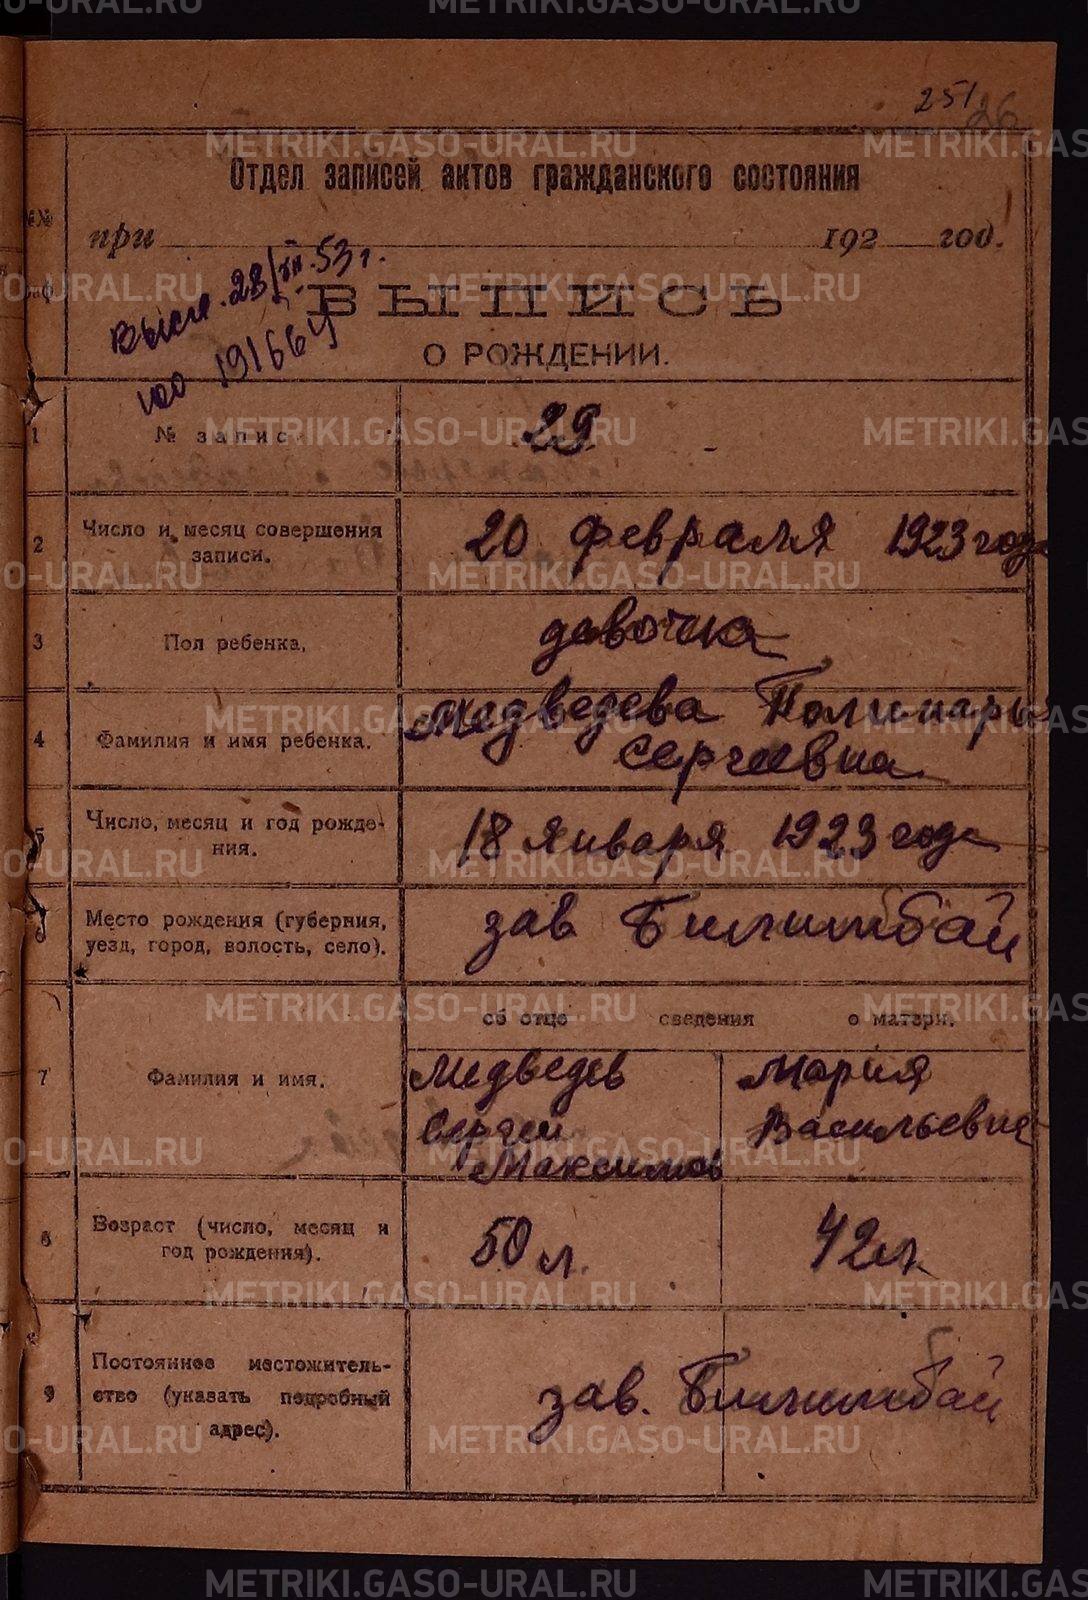 METRIKI.GASO-URAL.RU
251 26
Отдел записей актов гражданского состояния
№№
при 192 год.
Высл. 28/VII.53 г.
юо 191664
ВЫПИСЬ
О РОЖДЕНИИ.
1 № запис 29
2 Число и месяц совершения записи. 20 февраля 1923 года
3 Пол ребенка, девочка
4 Фамилия и имя ребенка. Медведева Полинарья
Сергеевна
5 Число, месяц и год рожде-
ния. 18 января 1923 года
6 Место рождения (губерния,
уезд, город, волость, село). зав Билимбай
об отце сведения о матери.
7 Фамилия и имя. Медведев Мария
Сергей Васильевна
Максимов
8 Возраст (число, месяц и
год рождения). 50 л. 42 л.
9 Постоянное местожитель-
ство (указать подробный
адрес). зав. Билимбай